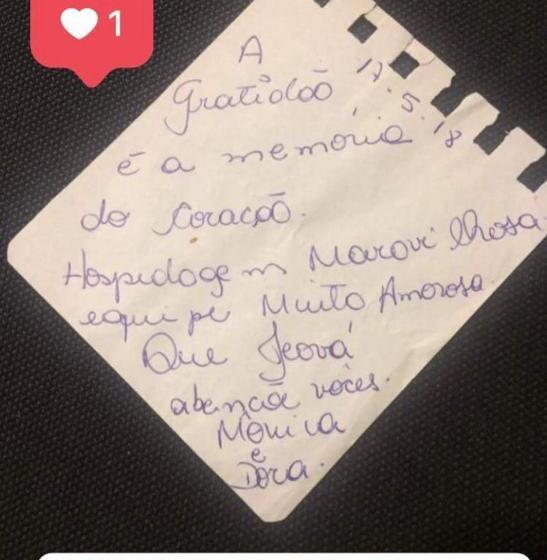 1
A
Gratidão
17.5.18
é a memória
do Coração.
Hospedagem Maravilhosa.
equipe Muito Amorosa.
Que Jeová
abençoe vocês.
Mônica
e
Dora.